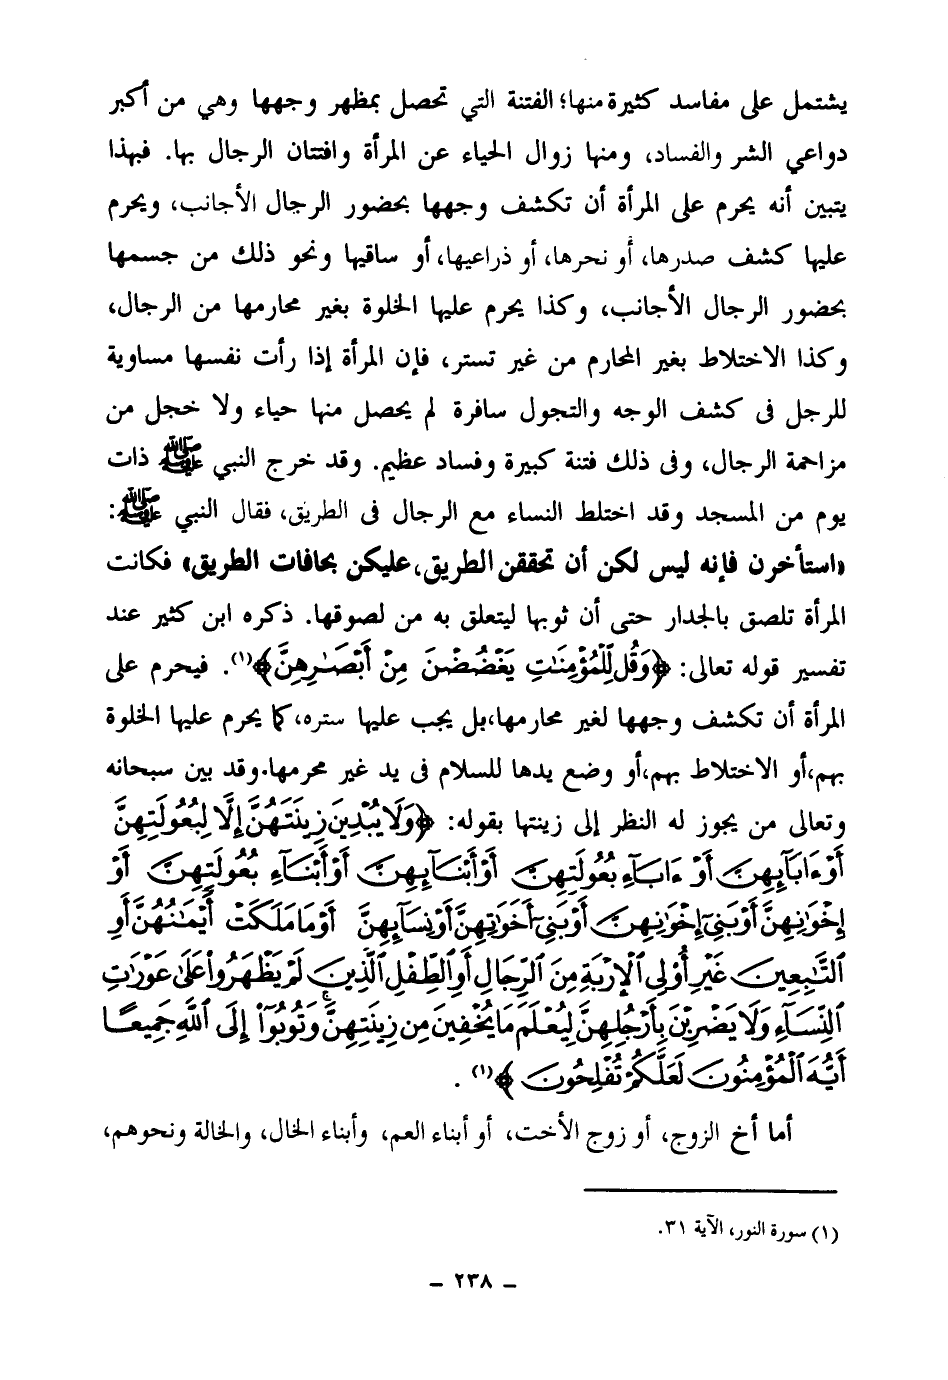 يشتمل على مفاسد كثيرة منها؛ الفتنة التي تحصل بمظهر وجهها وهي من أكبر
دواعي الشر والفساد، ومنها زوال الحياء عن المرأة وافتتان الرجال بها. فبهذا
يتبين أنه يحرم على المرأة أن تكشف وجهها بحضور الرجال الأجانب، ويحرم
عليها كشف صدرها، أو نحرها، أو ذراعيها، أو ساقيها ونحو ذلك من جسمها
بحضور الرجال الأجانب، وكذا يحرم عليها الخلوة بغير محارمها من الرجال،
وكذا الاختلاط بغير المحارم من غير تستر، فإن المرأة إذا رأت نفسها مساوية
للرجل فى كشف الوجه والتجول سافرة لم يحصل منها حياء ولا خجل من
مزاحمة الرجال، وفى ذلك فتنة كبيرة وفساد عظيم. وقد خرج النبي ﷺ ذات
يوم من المسجد وقد اختلط النساء مع الرجال فى الطريق، فقال النبي ﷺ:
«استأخرن فإنه ليس لكن أن تحققن الطريق، عليكن بحافات الطريق» فكانت
المرأة تلصق بالجدار حتى أن ثوبها ليتعلق به من لصوقها. ذكره ابن كثير عند
تفسير قوله تعالى: ﴿وَقُل لِّلْمُؤْمِنَٰتِ يَغْضُضْنَ مِنْ أَبْصَٰرِهِنَّ﴾(١). فيحرم على
المرأة أن تكشف وجهها لغير محارمها، بل يجب عليها ستره، كما يحرم عليها الخلوة
بهم، أو الاختلاط بهم، أو وضع يدها للسلام فى يد غير محرمها. وقد بين سبحانه
وتعالى من يجوز له النظر إلى زينتها بقوله: ﴿وَلَا يُبْدِينَ زِينَتَهُنَّ إِلَّا لِبُعُولَتِهِنَّ
أَوْ ءَابَآئِهِنَّ أَوْ ءَابَآءِ بُعُولَتِهِنَّ أَوْ أَبْنَآئِهِنَّ أَوْ أَبْنَآءِ بُعُولَتِهِنَّ أَوْ
إِخْوَٰنِهِنَّ أَوْ بَنِىٓ إِخْوَٰنِهِنَّ أَوْ بَنِىٓ أَخَوَٰتِهِنَّ أَوْ نِسَآئِهِنَّ أَوْ مَا مَلَكَتْ أَيْمَٰنُهُنَّ أَوِ
ٱلتَّٰبِعِينَ غَيْرِ أُو۟لِى ٱلْإِرْبَةِ مِنَ ٱلرِّجَالِ أَوِ ٱلطِّفْلِ ٱلَّذِينَ لَمْ يَظْهَرُوا۟ عَلَىٰ عَوْرَٰتِ
ٱلنِّسَآءِ وَلَا يَضْرِبْنَ بِأَرْجُلِهِنَّ لِيُعْلَمَ مَا يُخْفِينَ مِن زِينَتِهِنَّ ۚ وَتُوبُوٓا۟ إِلَى ٱللَّهِ جَمِيعًا
أَيُّهَ ٱلْمُؤْمِنُونَ لَعَلَّكُمْ تُفْلِحُونَ﴾(١).
أما أخ الزوج، أو زوج الأخت، أو أبناء العم، وأبناء الخال، والخالة ونحوهم،
(١) سورة النور، الآية ٣١.
– ٢٣٨ –